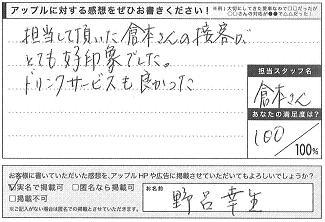 アップルに対する感想をぜひお書きください！
担当して頂いた倉本さんの接客が
とても好印象でした。
ドリンクサービスも良かった
担当スタッフ名
倉本さん
あなたの満足度は?
100/100%
お客様に書いていただいた感想を、アップルHPや広告に掲載させていただいてもよろしいでしょうか?
☑実名で掲載可 □匿名なら掲載可
□掲載不可
※ご記入がない場合は匿名での掲載とさせていただきます。
お名前
野呂幸生